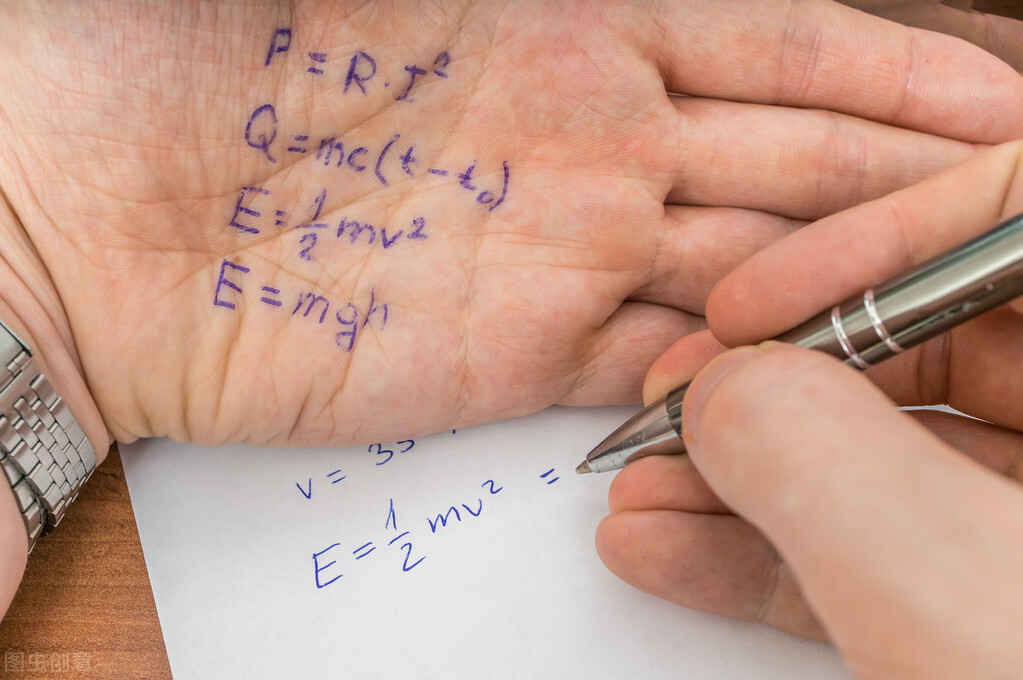 P = R·I²
Q = mc(t - t₀)
E = 1/2 mv²
E = mgh
v = 35
E = 1/2 mv² =
图虫创意